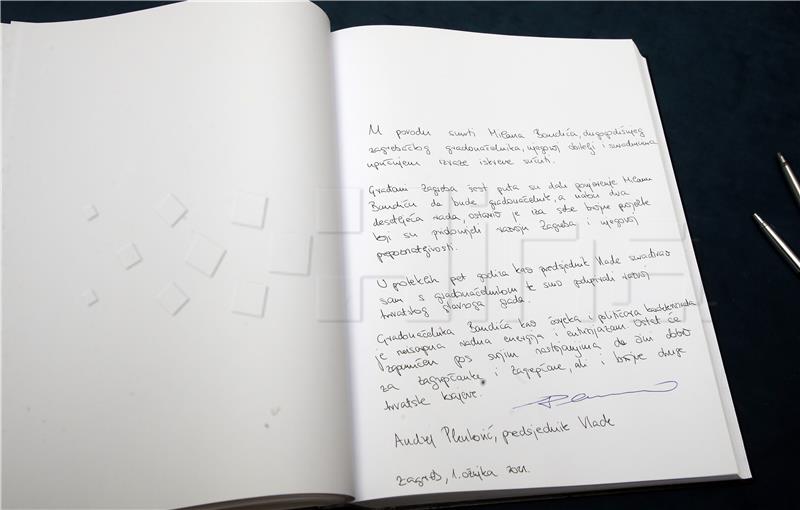 U povodu smrti Milana Bandića, dugogodišnjeg
zagrebačkog gradonačelnika, njegovoj obitelji i suradnicima
upućujem izraze iskrene sućuti.
Građani Zagreba šest puta su dali povjerenje Milanu
Bandiću da bude gradonačelnik, a nakon dva
desetljeća rada, ostavio je iza sebe brojne projekte
koji su pridonijeli razvoju Zagreba i njegovoj
prepoznatljivosti.
U proteklih pet godina kao predsjednik Vlade surađivao
sam s gradonačelnikom te smo podupirali razvoj
hrvatskog glavnoga grada.
Gradonačelnika Bandića kao čovjeka i političara karakterizirala
je neiscrpna radna energija i entuzijazam. Ostat će
zapamćen po svojim nastojanjima da čini dobro
za Zagrepčanke i Zagrepčane, ali i brojne druge
hrvatske krajeve.
Andrej Plenković, predsjednik Vlade
Zagreb, 1. ožujka 2021.
Hina